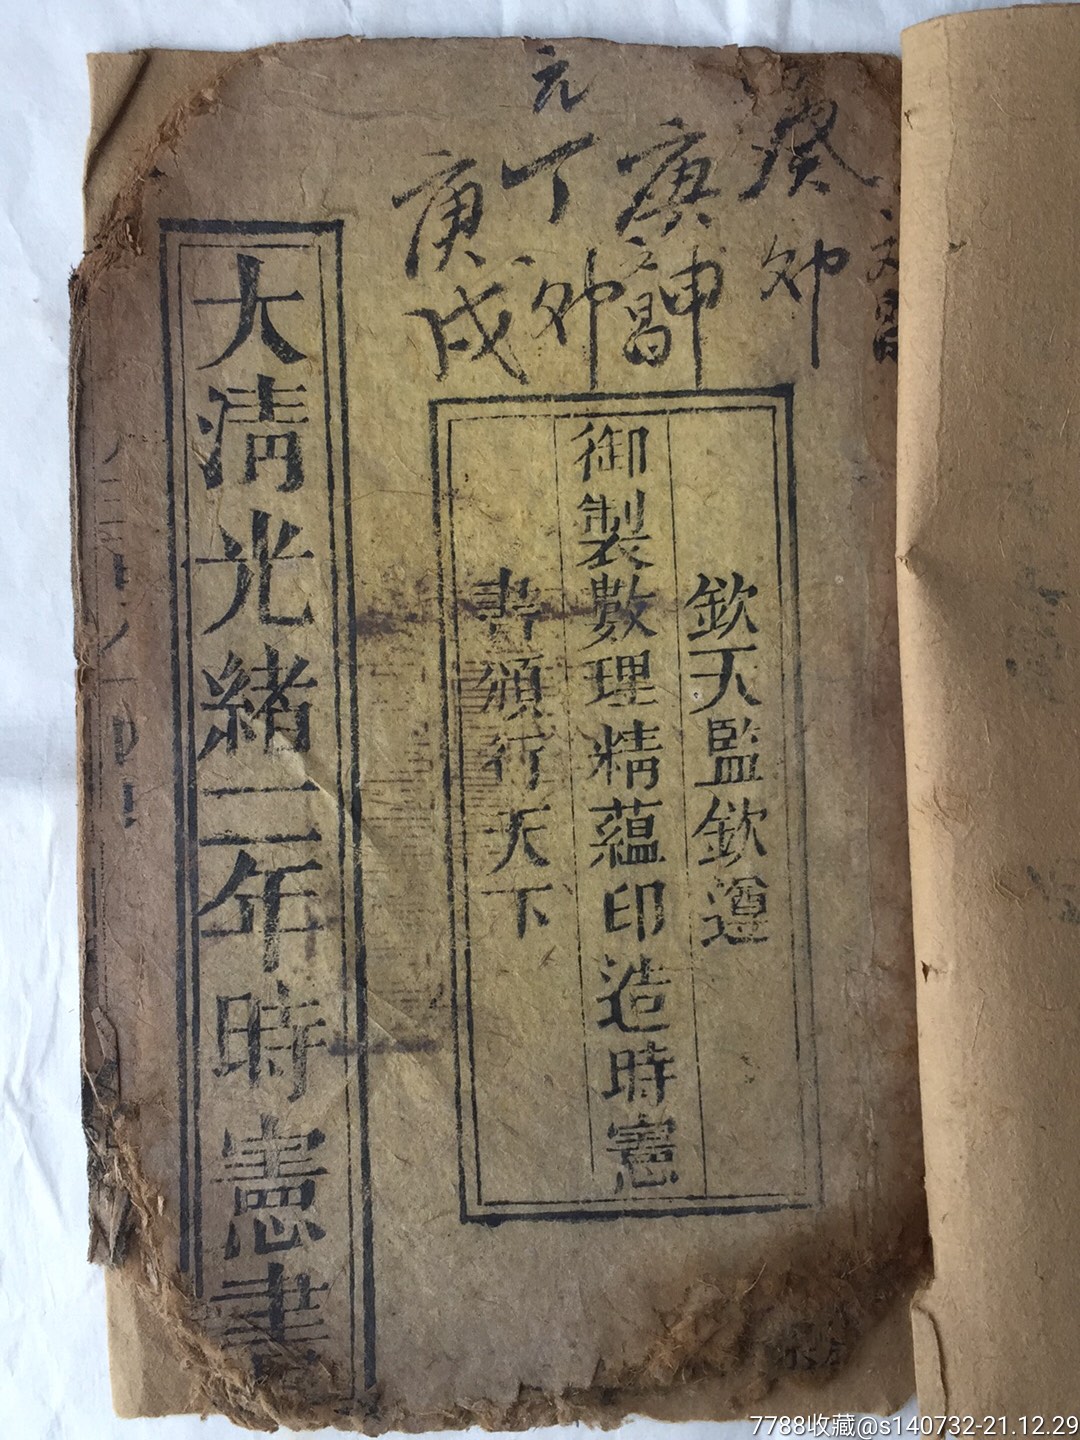 癸卯
庚申
文昌
元
丁卯
庚戌
欽天監欽遵
御製數理精蘊印造時憲
書頒行天下
大清光緒二年時憲書
7788收藏@s140732-21.12.29